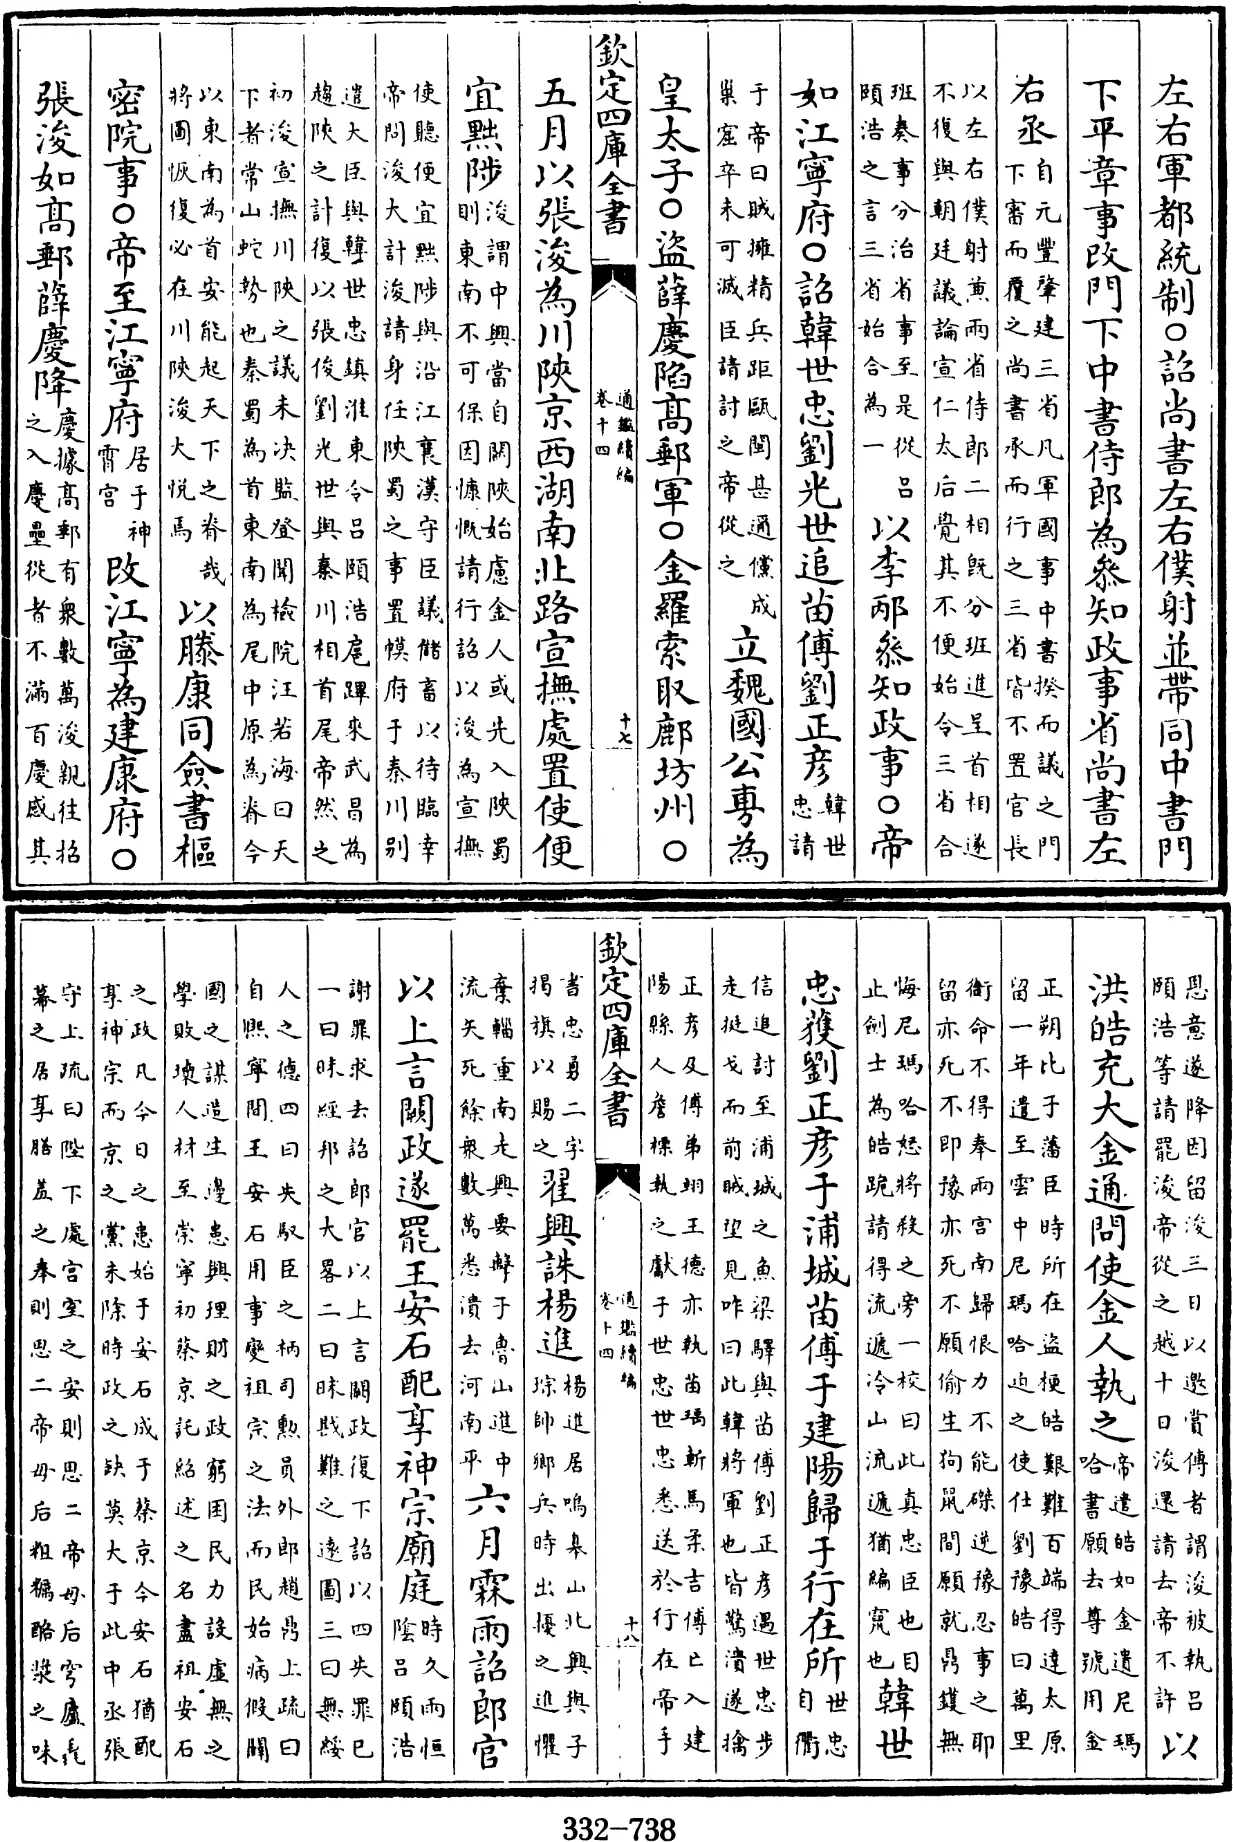 左右軍都統制○詔尚書左右僕射並帶同中書門
下平章事改門下中書侍郎為叅知政事省尚書左
右丞自元豐肇建三省凡軍國事中書揆而議之門
下審而覆之尚書承而行之三省皆不置官長
以左右僕射兼兩省侍郎二相旣分班進呈首相遂
不復與朝廷議論宣仁太后覺其不便始令三省合
班奏事分治省事至是從呂
頤浩之言三省始合為一以李邴叅知政事○帝
如江寧府○詔韓世忠劉光世追苗傅劉正彥韓世
忠請
于帝曰賊擁精兵距甌閩甚邇儻成
巢窟卒未可滅臣請討之帝從之立魏國公旉為
皇太子○盜薛慶陷髙郵軍○金羅索取鄜坊州○
欽定四庫全書
通鑑續編
卷十四
十七
五月以張浚為川陜京西湖南北路宣撫處置使便
宜黜陟浚謂中興當自關陜始慮金人或先入陜蜀
則東南不可保因慷慨請行詔以浚為宣撫
使聽便宜黜陟與沿江襄漢守臣議儲畜以待臨幸
帝問浚大計浚請身任陜蜀之事置幙府于秦川别
遣大臣與韓世忠鎮淮東令呂頤浩扈蹕來武昌為
趨陜之計復以張俊劉光世與秦川相首尾帝然之
初浚宣撫川陜之議未决監登聞檢院汪若海曰天
下者常山蛇勢也秦蜀為首東南為尾中原為脊今
以東南為首安能起天下之脊哉
將圖恢復必在川陜浚大悅焉以滕康同僉書樞
密院事○帝至江寧府居于神
霄宮改江寧為建康府○
張浚如髙郵薛慶降慶據髙郵有衆數萬浚親往招
之入慶壘從者不滿百慶感其
恩意遂降因留浚三日以邀賞傅者謂浚被執呂
頤浩等請罷浚帝從之越十日浚還請去帝不許以
洪皓充大金通問使金人執之帝遣皓如金遺尼瑪
哈書願去尊號用金
正朔比于藩臣時所在盜梗皓艱難百端得達太原
留一年遣至雲中尼瑪哈迫之使仕劉豫皓曰萬里
銜命不得奉兩宮南歸恨力不能磔逆豫忍事之耶
留亦死不即豫亦死不願偷生狗鼠間願就鼎鑊無
悔尼瑪哈怒將殺之旁一校曰此真忠臣也目
止劍士為皓跪請得流遞冷山流遞猶編竄也韓世
忠獲劉正彥于浦城苗傅于建陽歸于行在所世忠
自衢
信追討至浦城之魚梁驛與苗傅劉正彥遇世忠步
走挺戈而前賊望見咋曰此韓將軍也皆驚潰遂擒
正彥及傅弟翊王德亦執苗瑀斬馬柔吉傅亡入建
陽縣人詹標執之獻于世忠世忠悉送於行在帝手
欽定四庫全書
通鑑續編
卷十四
十八
書忠勇二字
揭旗以賜之翟興誅楊進楊進居鳴皋山北興與子
琮帥鄉兵時出擾之進懼
棄輜重南走興要擊于魯山進中
流矢死餘衆數萬悉潰去河南平六月霖雨詔郎官
以上言闕政遂罷王安石配享神宗廟庭時久雨恒
陰呂頤浩
謝罪求去詔郎官以上言闕政復下詔以四失罪已
一曰昧經邦之大畧二曰昧戡難之遠圖三曰無綏
人之德四曰失馭臣之柄司勲員外郎趙鼎上疏曰
自熈寧間王安石用事變祖宗之法而民始病假闢
國之謀造生邊患興理財之政窮困民力設虛無之
學敗壞人材至崇寧初蔡京託紹述之名盡祖安石
之政凡今日之患始于安石成于蔡京今安石猶配
享神宗而京之黨未除時政之缺莫大于此中丞張
守上疏曰陛下處宮室之安則思二帝母后穹廬毳
幕之居享膳羞之奉則思二帝母后粗糲酪漿之味
332-738